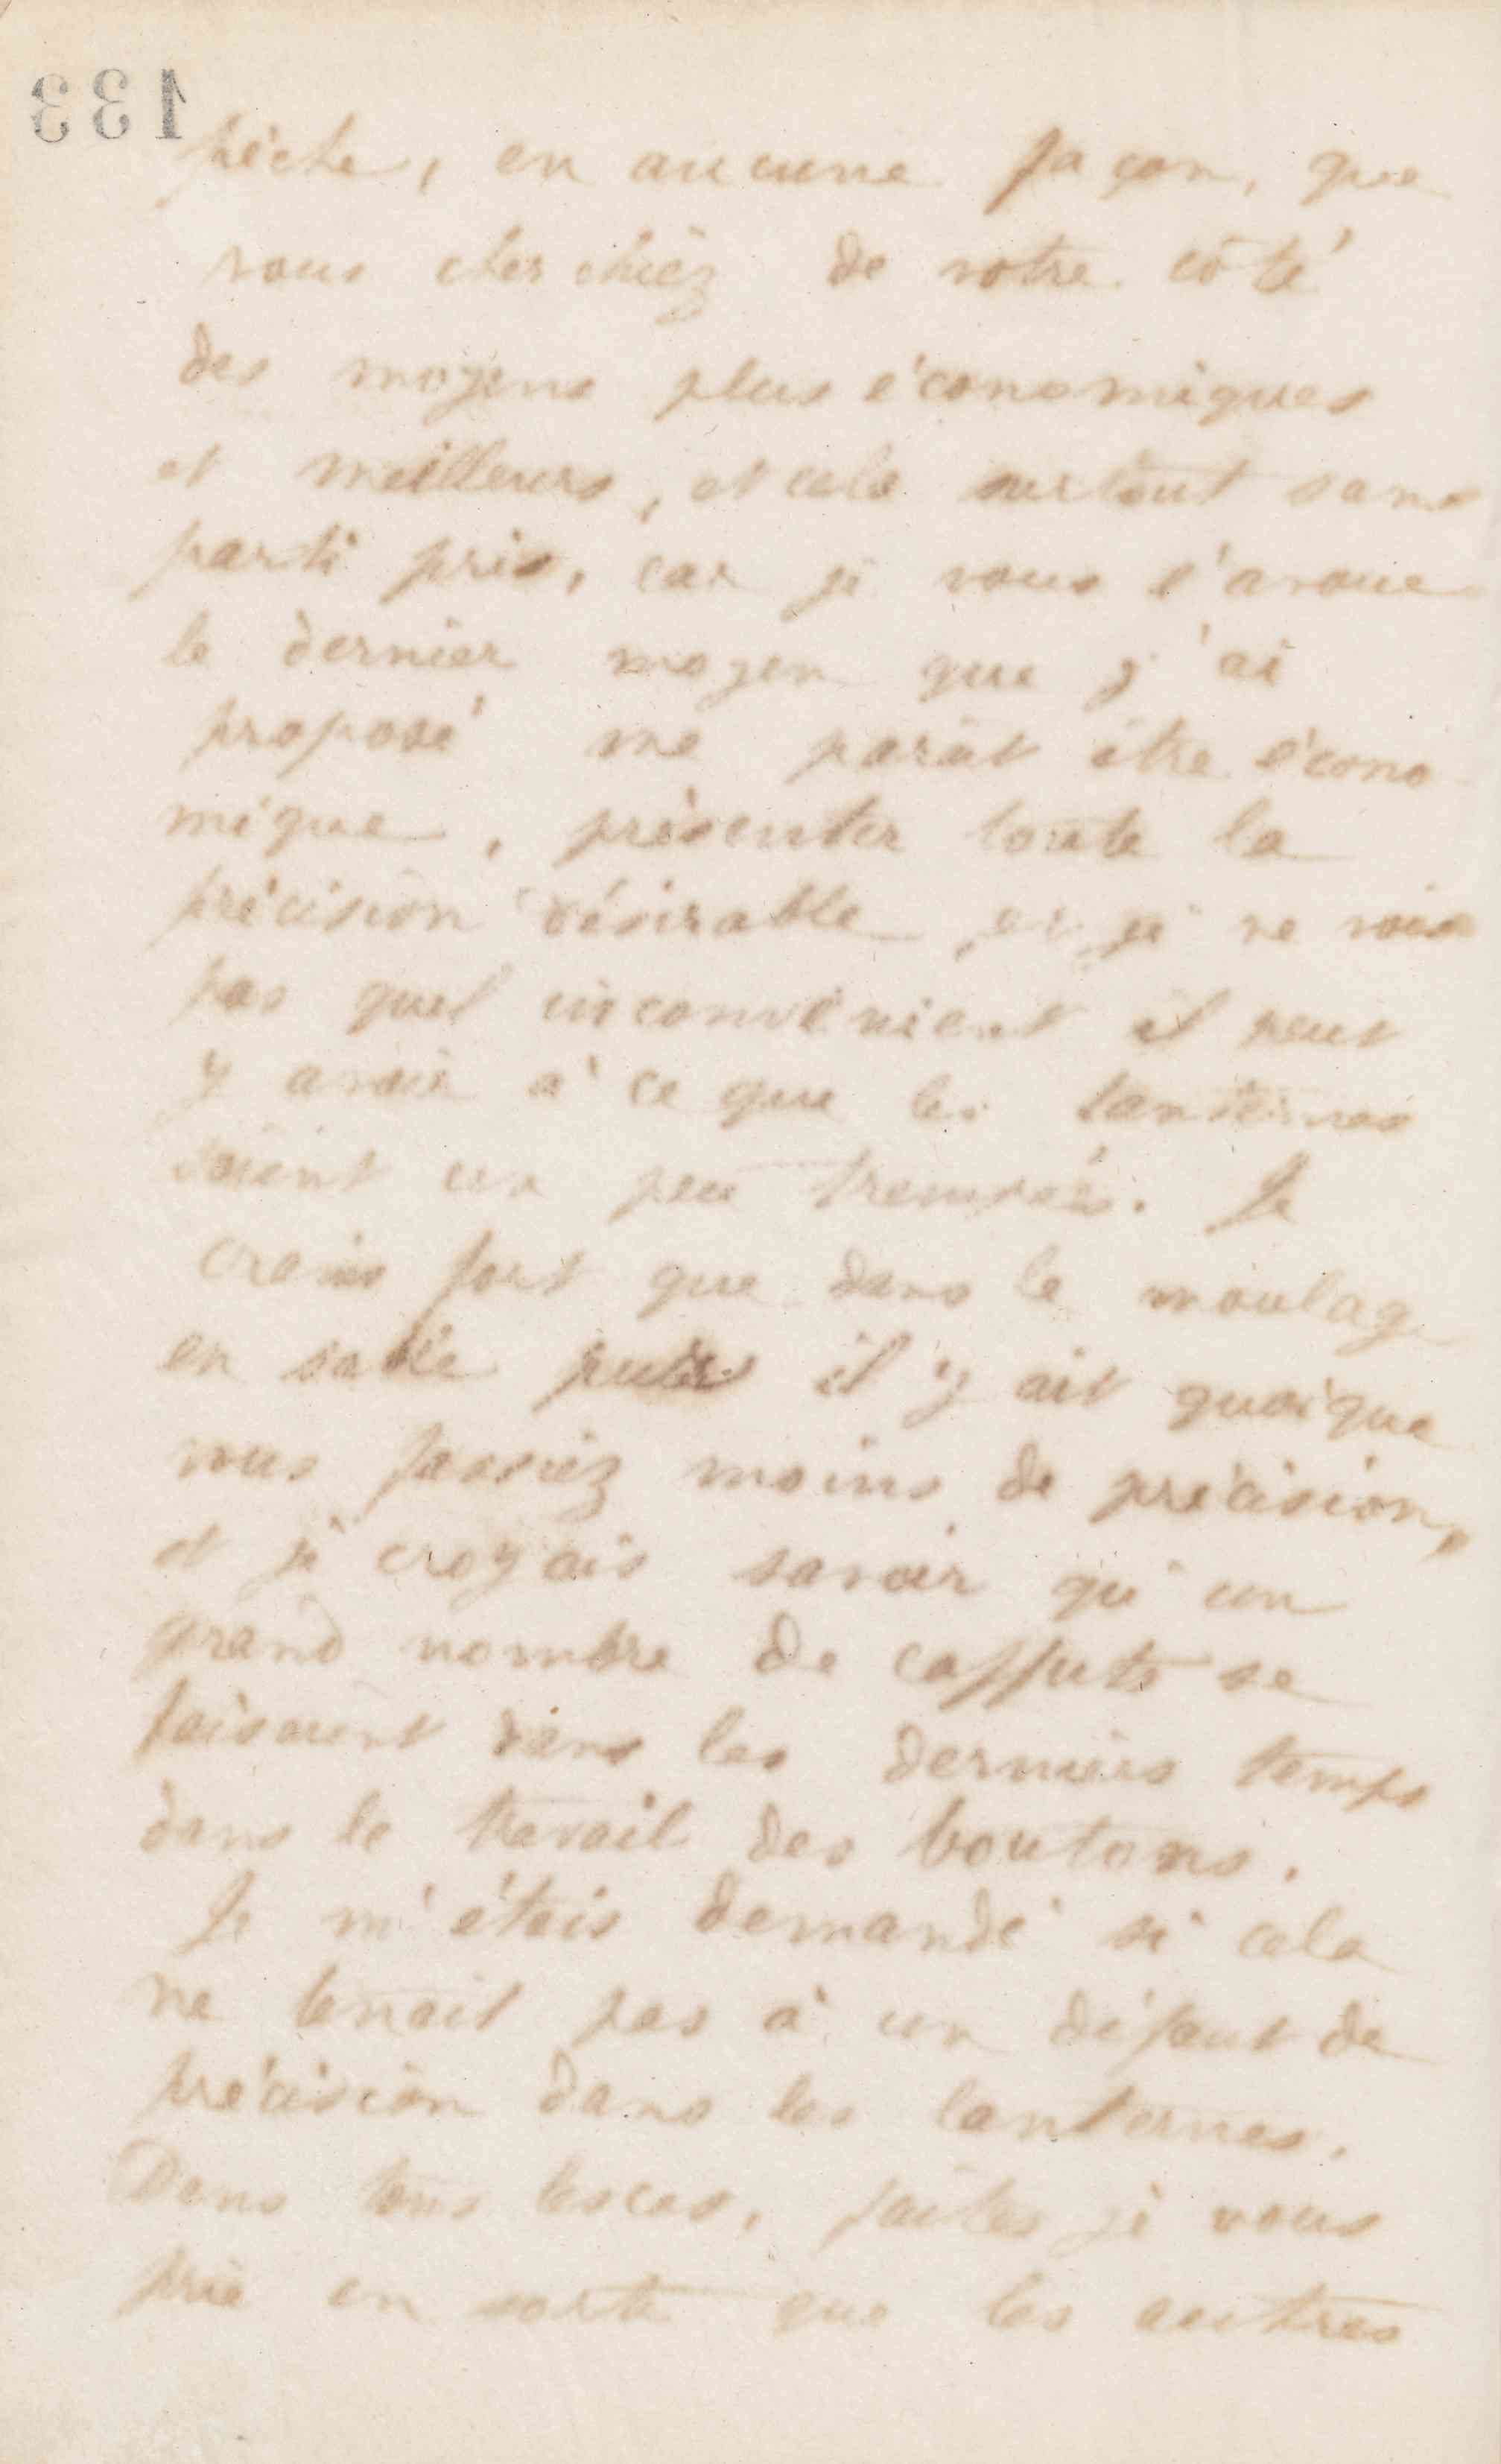 133
pêche, en aucune façon, que
vous cherchiez de votre côté
des moyens plus économiques
et meilleurs, et cela surtout sans
parti pris, car je vous l'avoue
le dernier moyen que j'ai
proposé me parait être écono
mique, présenter toute la
précision désirable, et je ne vois
pas quel inconvénient il peut
y avoir à ce que les lanternes
soient un peu trempées. Je
crains fort que dans le moulag
en sable il y ait quoique
vous fassiez moins de précision,
et je croyais savoir qu'un
grand nombre de caffuts se
faisaient dans les derniers temps
dans le travail des boutons.
Je m'étais demandé si cela
ne tenait pas à un défaut de
précision dans les lanternes.
Dans tous les cas, faites je vous
prie en sorte que les autres